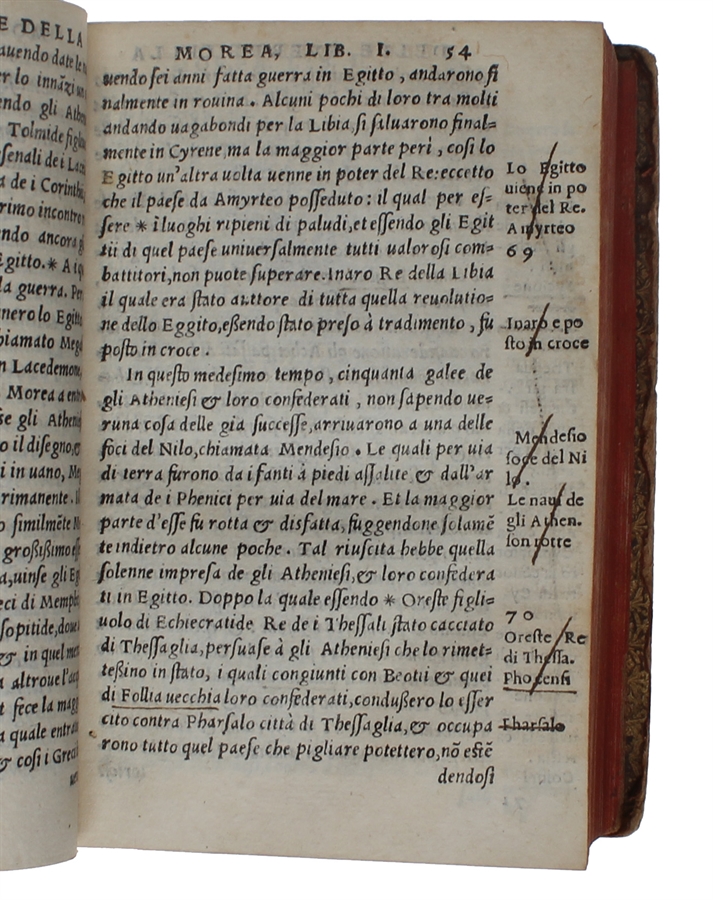 E DELLA
auendo date le
er lo innãzi
endo gli Athe
Tolmide figli
senali de i Lace
a de i Corinthi
rimo incontro
ndo ancora
gitto.* A i
la guerra. Per
nero lo Egitto
hiamato Mega
n Lacedemone
Morea a
se gli Athenie
o il disegno,
i in uano, Me
rimanente.
o similmẽte
grossissimo
a,uinse gli Egi
eci di Memphi
sopitide,doue
& in quel
altroue l'
t fece la magg
a quale entra
& cosi i Greci
MOREA, LIB. I. 54
uendo sei anni fatta guerra in Egitto, andarono fi
nalmente in rouina. Alcuni pochi di loro tra molti
andando uagabondi per la Libia, si saluarono final=
mente in Cyrene, ma la maggior parte perì, cosi lo
Egitto un'altra uolta uenne in poter del Re: eccetto
che il paese da Amyrteo posseduto: il qual per es=
sere * i luoghi ripieni di paludi, et essendo gli Egit
tii di quel paese uniuersalmente tutti ualorosi com=
battitori, non puote superare. Inaro Re della Libia
il quale era stato auttore di tutta quella reuolutio=
ne dello Eggito, eßendo stato preso à tradimento, fu
posto in croce.
In questo medesimo tempo, cinquanta galee de
gli Atheniesi & loro confederati, non sapendo ue=
runa cosa delle gia successe, arriuarono a una delle
foci del Nilo, chiamata Mendesio. Le quali per uia
di terra furono da i fanti à piedi assalite & dall'ar
mata de i Phenici per uia del mare. Et la maggior
parte d'esse fu rotta & disfatta, fuggendone solamẽ
te indietro alcune poche. Tal riuscita hebbe quella
solenne impresa de gli Atheniesi, & loro confedera
ti in Egitto. Doppo la quale essendo * Oreste figli=
uolo di Echiecratide Re de i Thessali stato cacciato
di Thessaglia, persuase à gli Atheniesi che lo rimet=
teßino in stato, i quali congiunti con Beotii & quei
di Follia uecchia loro confederati, condußero lo esser
cito contra Pharsalo città di Thessaglia, & occupa
rono tutto quel paese che pigliare potettero, nõ estẽ
dendosi
Lo Egitto
uiene in po
ter del Re.
Amyrteo
69
Inaro e po
sto in croce
Mendesio
foce del Ni
lo.
Le naui de
gli Athen.
son rotte
70
Oreste Re
di Thessa.
Phocensi
Pharsalo